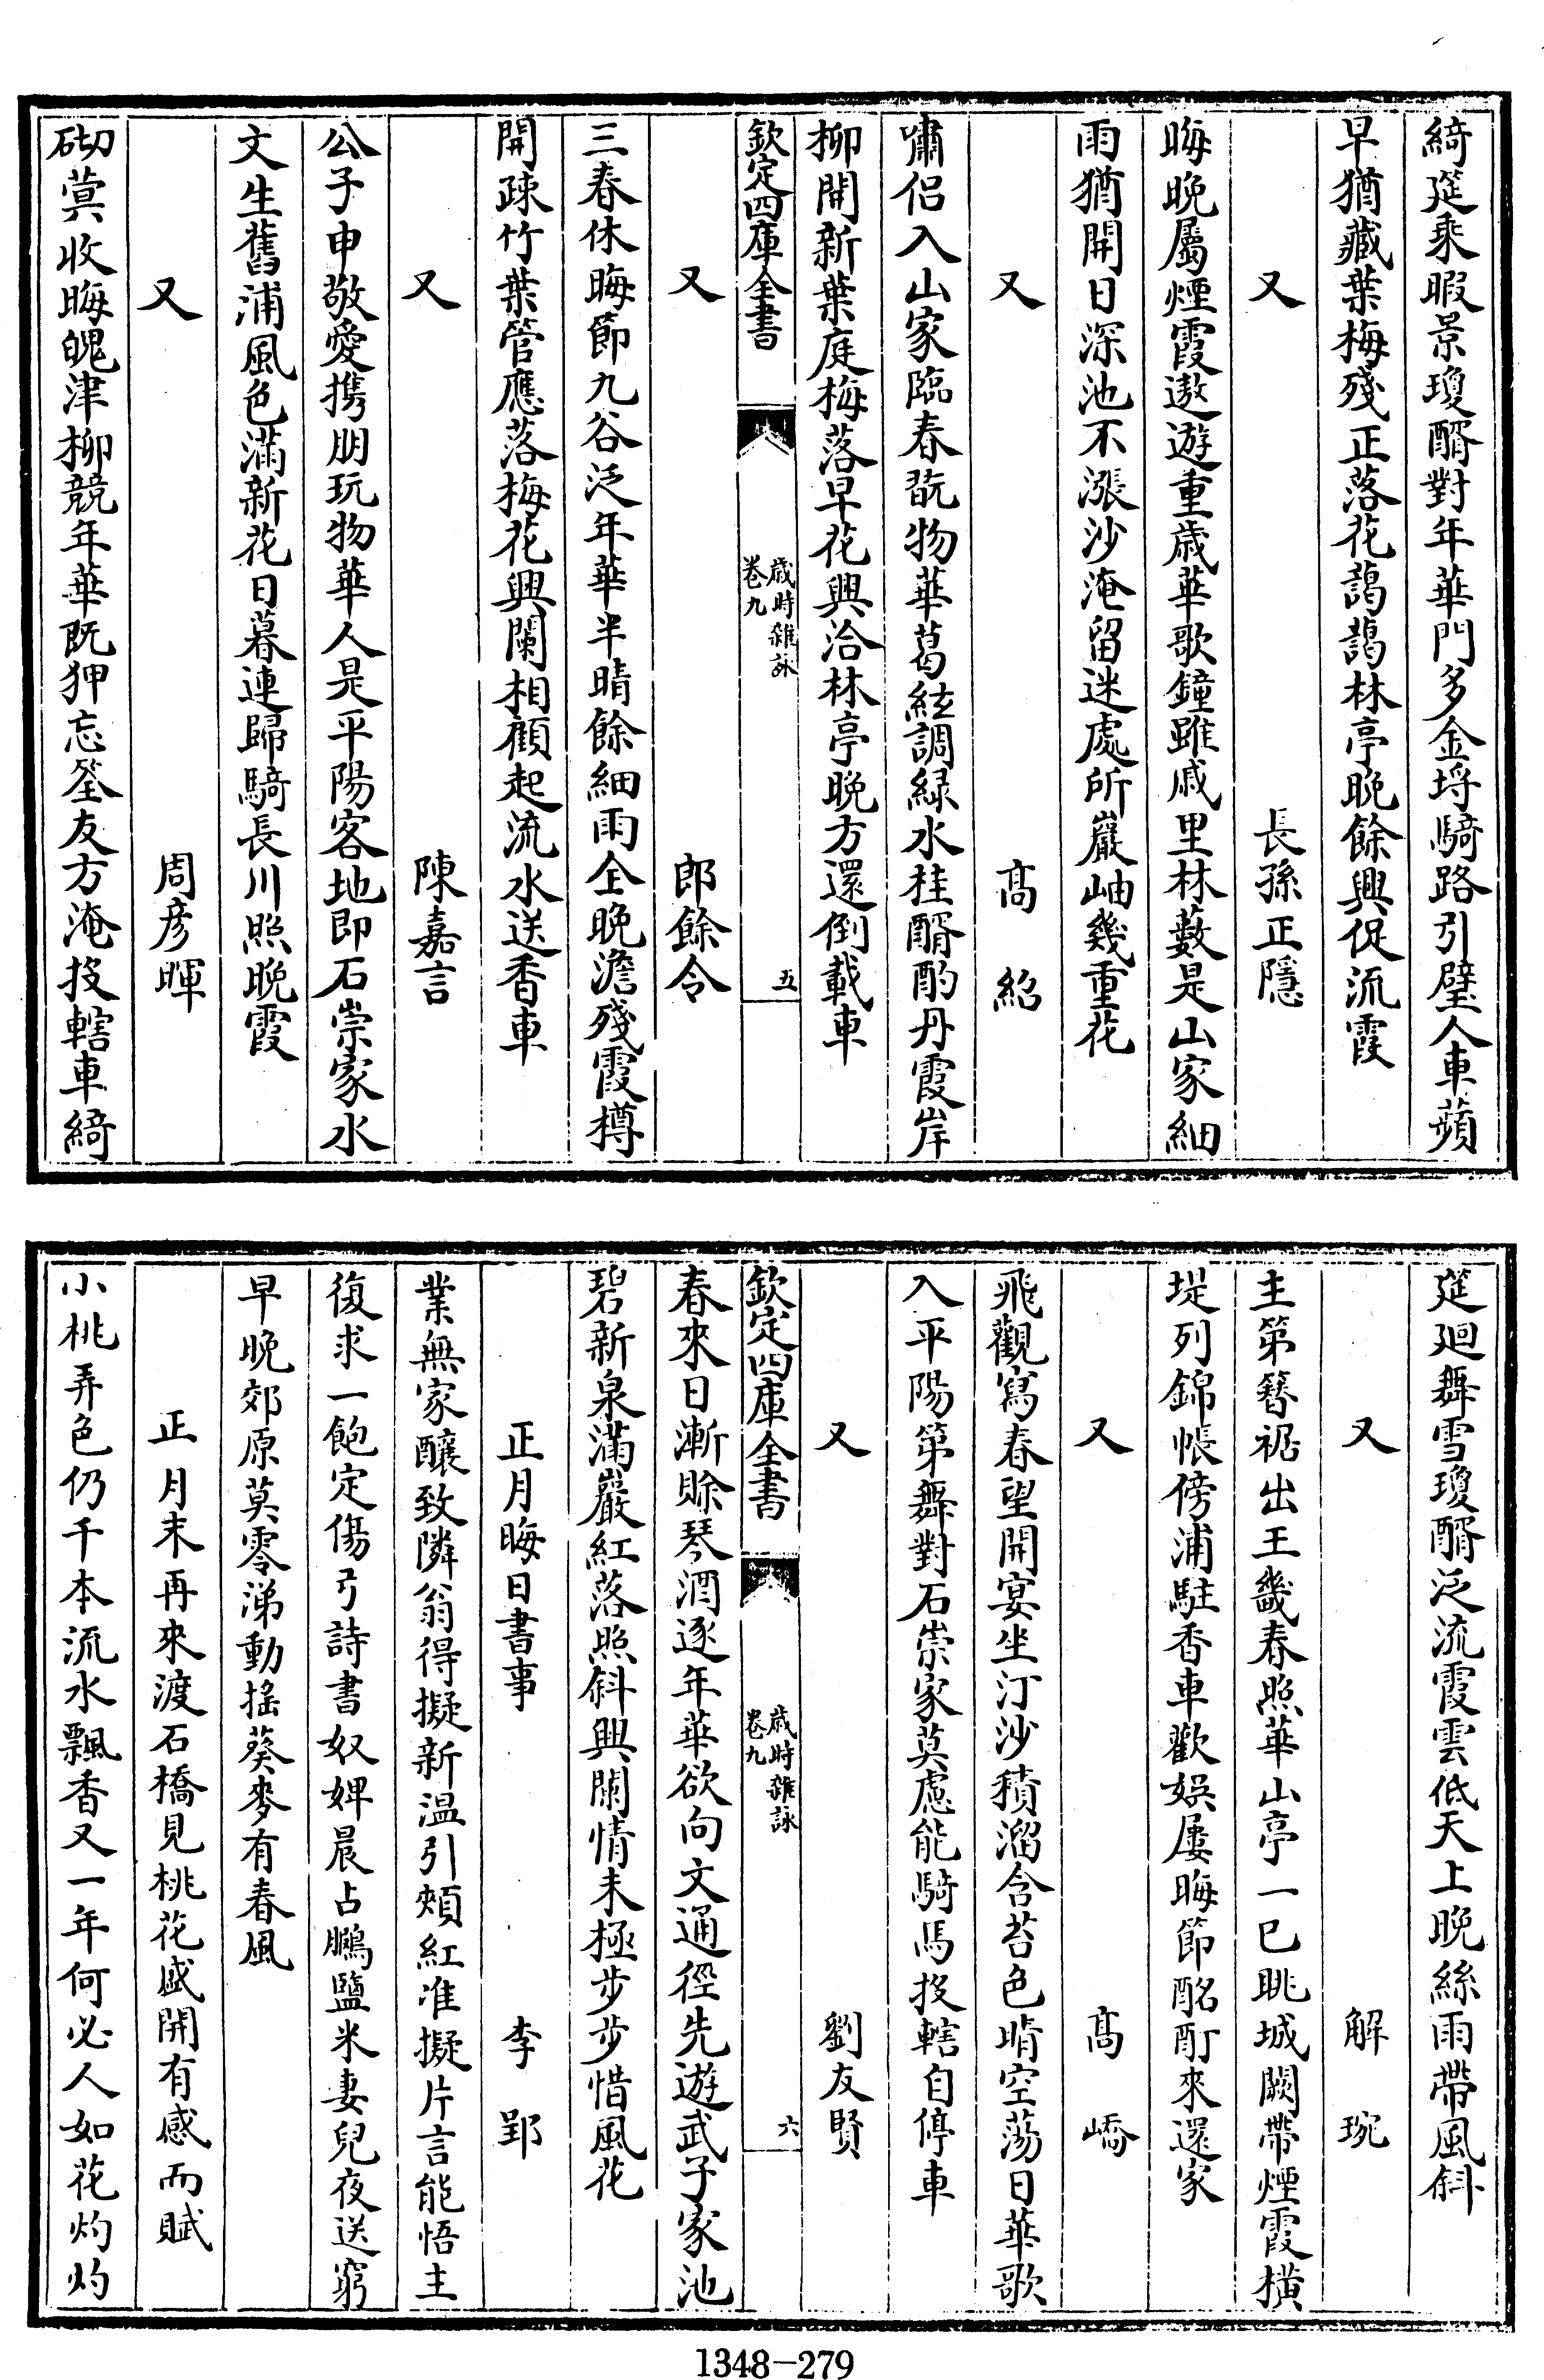 綺筵乘暇景瓊醑對年華門多金埒騎路引璧人車蘋
早猶藏葉梅殘正落花藹藹林亭晚餘興促流霞
又　長孫正隱
晦晚屬煙霞遨遊重歲華歌鐘雖戚里林藪是山家細
雨猶開日深池不漲沙淹留迷處所巖岫幾重花
又　高紹
嘯侶入山家臨春翫物華葛絃調緑水桂醑酌丹霞岸
柳開新葉庭梅落早花興洽林亭晚方還倒載車
欽定四庫全書　歲時雜詠　卷九　五
又　郎餘令
三春休晦節九谷泛年華半晴餘細雨全晚澹殘霞樽
開疎竹葉管應落梅花興闌相顧起流水送香車
又　陳嘉言
公子申敬愛携朋玩物華人是平陽客地即石崇家水
文生舊浦風色滿新花日暮連歸騎長川照晚霞
又　周彦暉
砌蓂收晦魄津柳競年華既狎忘筌友方淹投轄車綺
筵廻舞雪瓊醑泛流霞雲低天上晚絲雨帶風斜
又　解琬
主第簪裾出王畿春照華山亭一已眺城闕帶煙霞橫
堤列錦帳傍浦駐香車歡娛屢晦節酩酊來還家
又　高嶠
飛觀寫春望開宴坐汀沙積溜含苔色晴空蕩日華歌
入平陽第舞對石崇家莫慮能騎馬投轄自停車
又　劉友賢
欽定四庫全書　歲時雜詠　卷九　六
春來日漸賒琴酒逐年華欲向文通徑先遊武子家池
碧新泉滿巖紅落照斜興闌情未極步步惜風花
正月晦日書事　李郢
業無家釀致隣翁得擬新温引頰紅准擬片言能悟主
復求一飽定傷弓詩書奴婢晨占鵬鹽米妻兒夜送窮
早晚郊原莫零涕動揺葵麥有春風
正月末再來渡石橋見桃花盛開有感而賦
小桃弄色仍千本流水飄香又一年何必人如花灼灼
1348-279